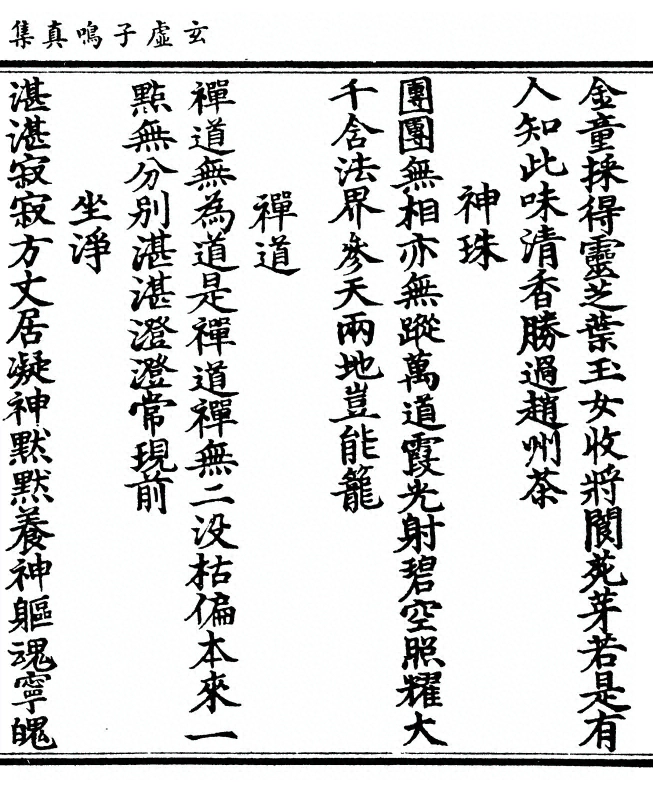 玄虛子鳴真集
金童採得靈芝葉玉女收將閬苑芽若是有
人知此味清香勝過趙州茶
神珠
團團無相亦無蹤萬道霞光射碧空照耀大
千含法界參天兩地豈能籠
禪道
禪道無為道是禪道禪無二没枯偏本來一
點無分别湛湛澄澄常現前
坐淨
湛湛寂寂方丈居凝神默默養神軀魂寧魄